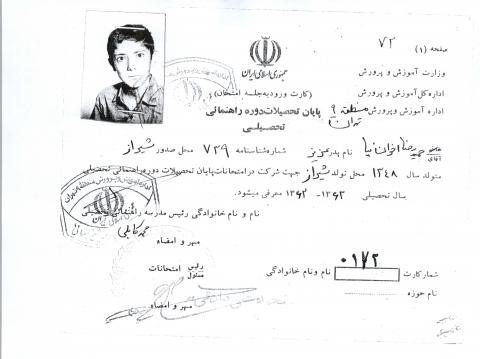 صفحه (۱)
۷۲
جمهوری اسلامی ایران
وزارت آموزش و پرورش
اداره کل آموزش و پرورش
(کارت ورود به جلسه امتحان)
اداره آموزش و پرورش منطقه ۹ تهران
پایان تحصیلات دوره راهنمائی تحصیلی
آقای حمیدرضا اخوان نیا نام پدر عزیز شماره شناسنامه ۷۳۹ محل صدور شیراز
متولد سال ۱۳۴۸ محل تولد شیراز جهت شرکت در امتحانات پایان تحصیلات دوره راهنمائی تحصیلی
سال تحصیلی ۱۳۶۳-۱۳۶۲ معرفی میشود.
نام و نام خانوادگی رئیس مدرسه راهنمائی تحصیلی
مهر و امضاء
شماره کارت ۰۱۷۲
نام و نام خانوادگی رئیس مسئول امتحانات
نام حوزه
مهر و امضاء